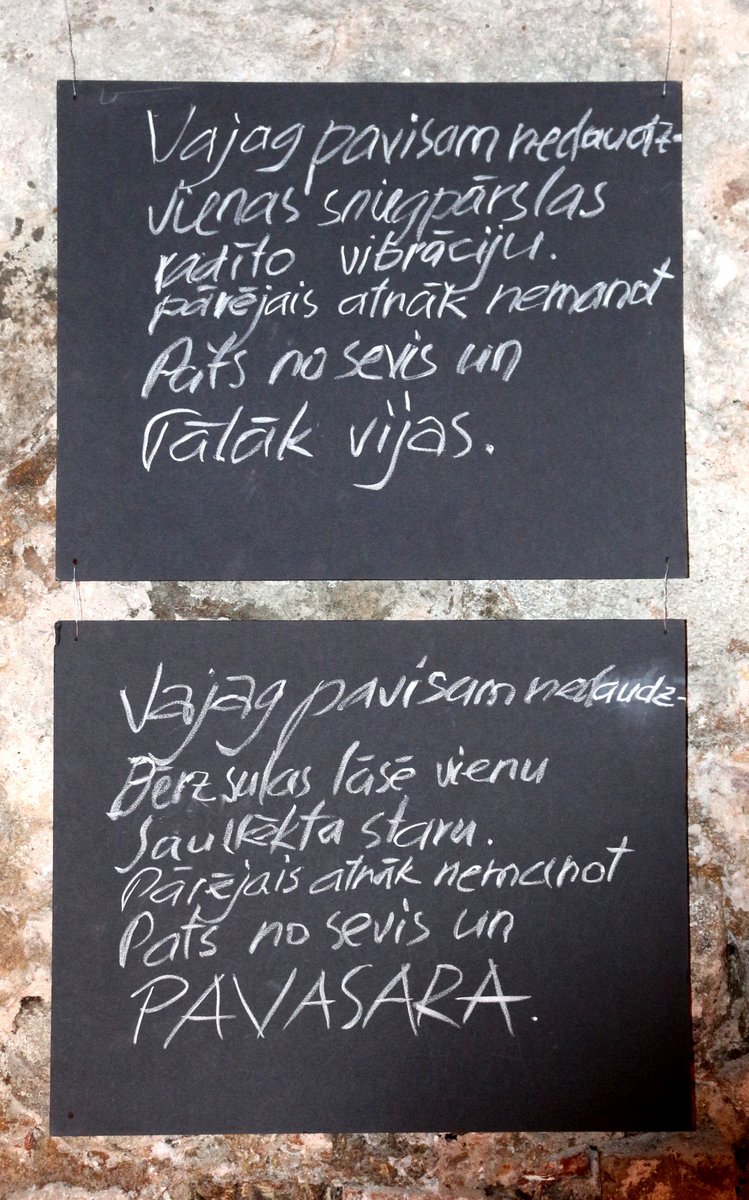 Vajag pavisam nedaudz-
vienas sniegpārslas
radīto vibrāciju.
pārējais atnāk nemanot
Pats no sevis un
Tālāk vijas.
Vajag pavisam nedaudz-
Bērzsulas lāsē vienu
Saullēkta staru.
Pārējais atnāk nemanot
Pats no sevis un
PAVASARA.